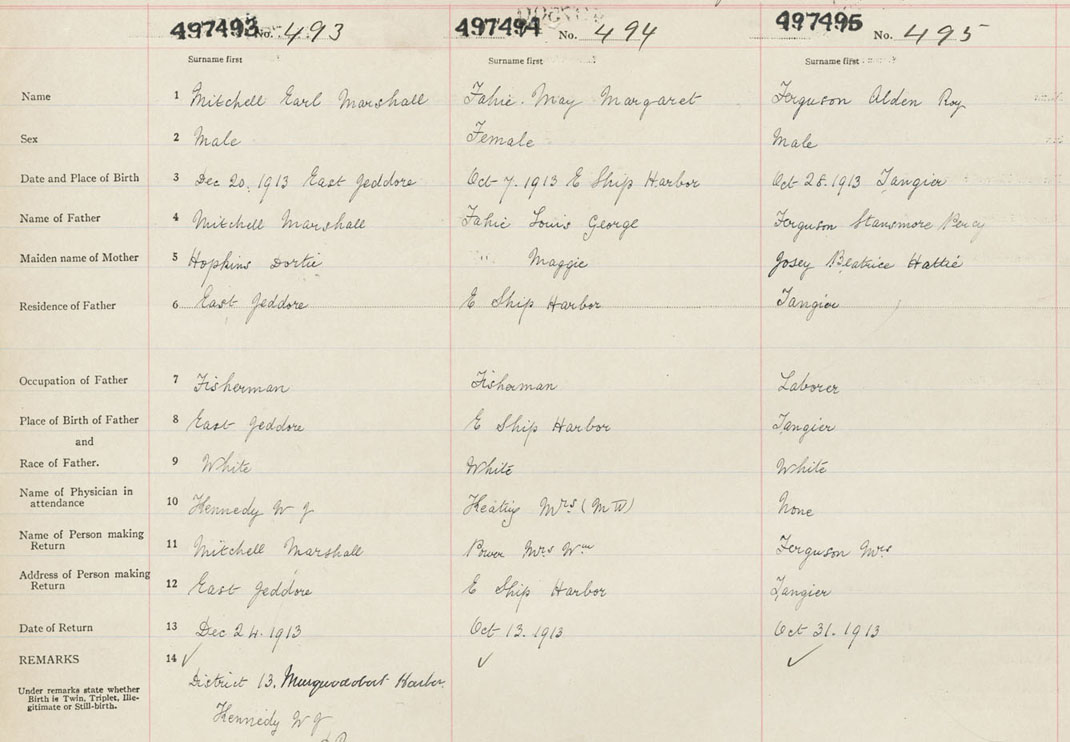 497493 No. 493 497494 No. 494 497495 No. 495
Surname first Surname first Surname first
Name 1 Mitchell Earl Marshall Fahie May Margaret Ferguson Alden Roy
Sex 2 Male Female Male
Date and Place of Birth 3 Dec 20. 1913 East Jeddore Oct 7. 1913 E Ship Harbor Oct 28. 1913 Tangier
Name of Father 4 Mitchell Marshall Fahie Louis George Ferguson Stansmore Percy
Maiden name of Mother 5 Hopkins Dortie Maggie Josey Beatrice Hattie
Residence of Father 6 East Jeddore E Ship Harbor Tangier
Occupation of Father 7 Fisherman Fisherman Laborer
Place of Birth of Father 8 East Jeddore E Ship Harbor Tangier
and
Race of Father. 9 White White White
Name of Physician in
attendance 10 Kennedy W J Keating Mrs (M W) None
Name of Person making
Return 11 Mitchell Marshall Power Mrs Wm Ferguson Mrs
Address of Person making
Return 12 East Jeddore E Ship Harbor Tangier
Date of Return 13 Dec 24. 1913 Oct 13. 1913 Oct 31. 1913
REMARKS 14
District 13. Musquodoboit Harbor.
Under remarks state whether
Birth is Twin, Triplet, Ille-
gitimate or Still-birth.
Kennedy W J